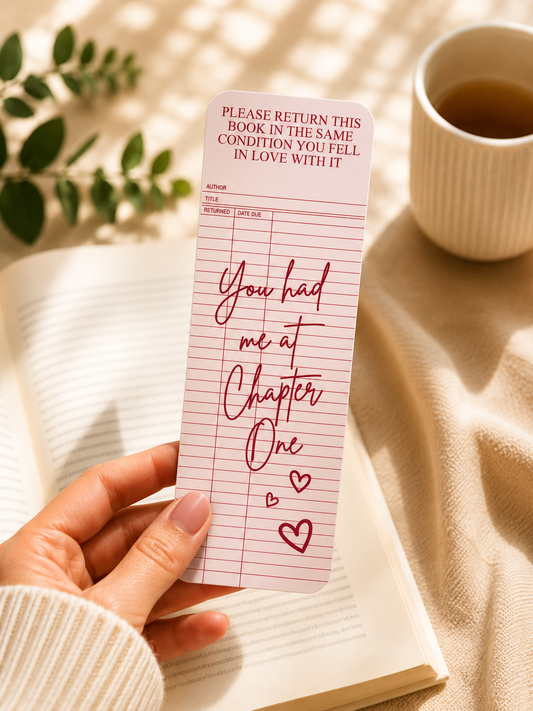 PLEASE RETURN THIS
BOOK IN THE SAME
CONDITION YOU FELL
IN LOVE WITH IT
AUTHOR
TITLE
RETURNED DATE DUE
You had
me at
Chapter
One